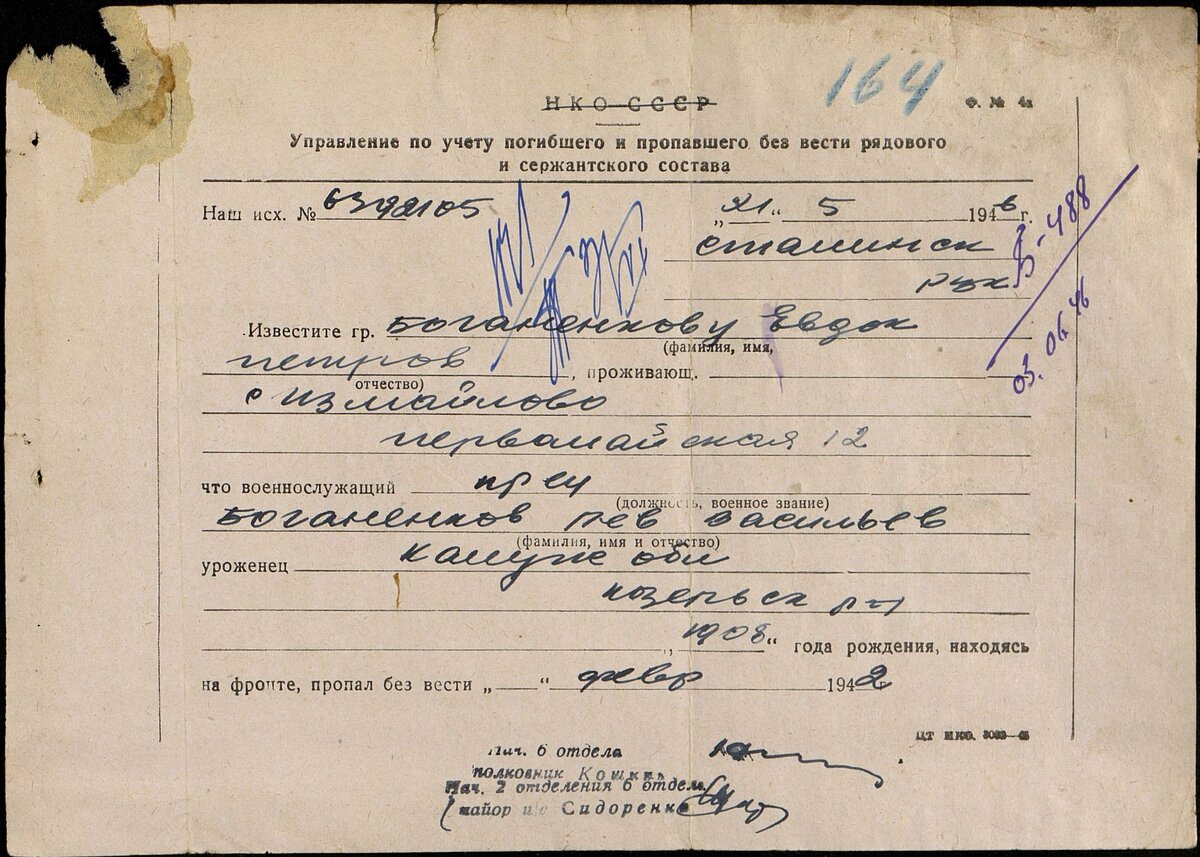 164
НКО СССР
Ф. № 4а
Управление по учету погибшего и пропавшего без вести рядового
и сержантского состава
Наш исх. №
„21“ 5 1946 г.
Сталинск
рвк
Б-488
03.06.46
Известите гр. Боганенкову Евдок
(фамилия, имя,
петров, проживающ.
отчество)
с Измайлово
первомайская 12
что военнослужащий кр-ец
(должность, военное звание)
Боганенков Лев Васильев
(фамилия, имя и отчество)
уроженец Калуж обл
козельск р-н
„1908“ года рождения, находясь
на фронте, пропал без вести „ “ февр 1942 г
ЦТ НКО.
Нач. 6 отдела
полковник Кошкин
Нач. 2 отделения 6 отдела
майор и/с Сидоренко